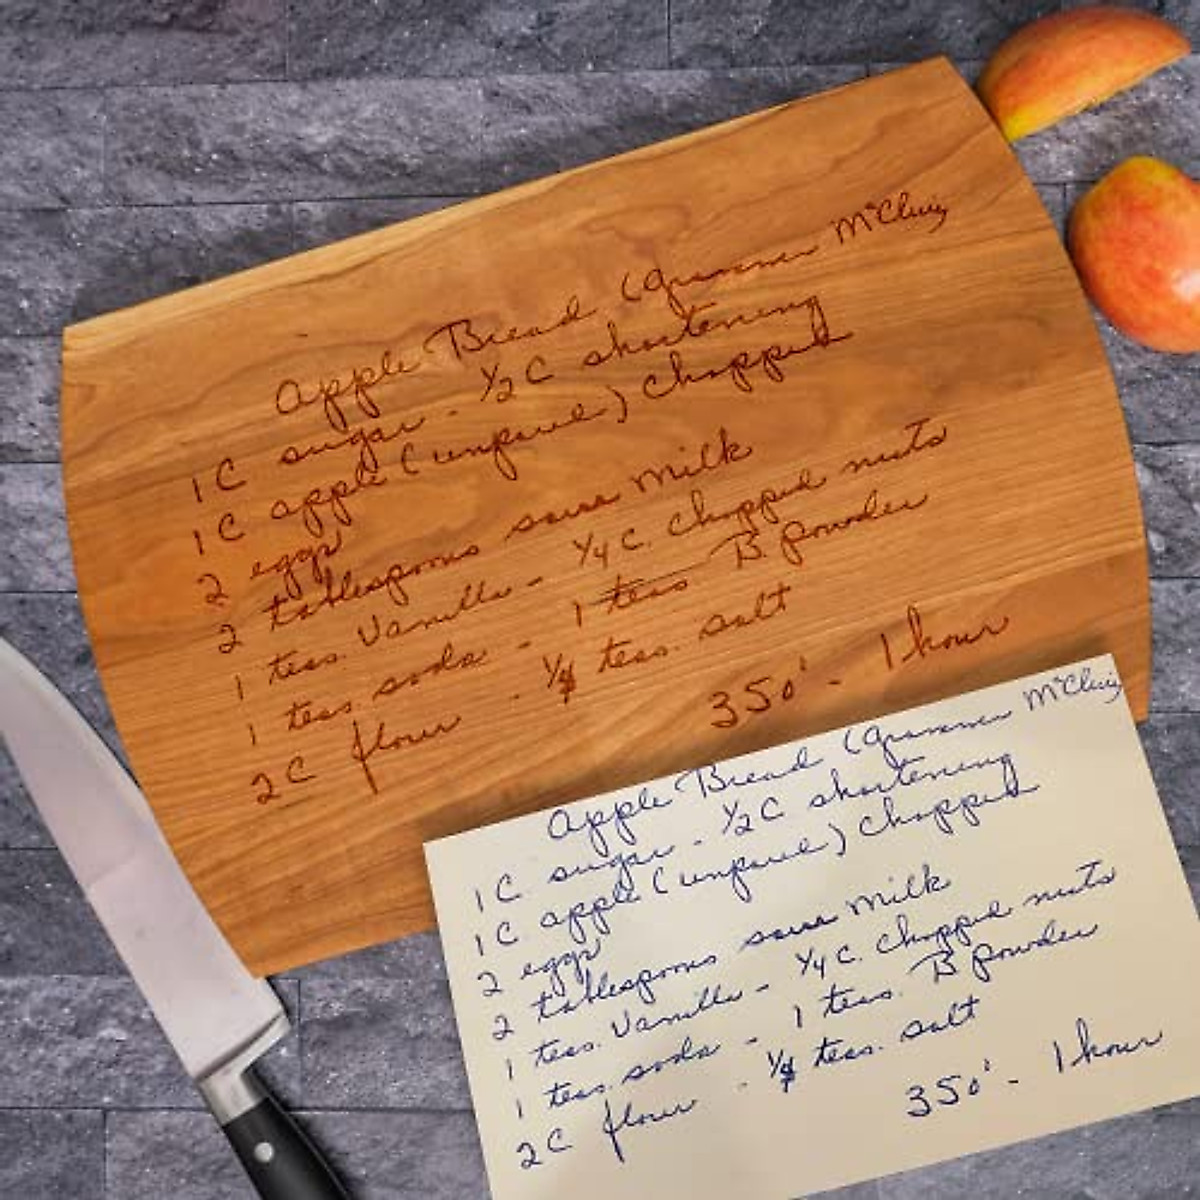 Apple Bread (Grammer McCluig
1 C sugar - 1/2 C shortening
1 C apple (unpared) chopped
2 eggs
2 tablespoons sour milk
1 teas. Vanilla - 1/4 C. chopped nuts
1 teas. soda - 1 teas B. powder
2 C flour - teas. salt
350° - 1 hour
Apple Bread (Grammer McCluig
1 C. sugar - 1/2 C shortening
1 C. apple (unpared) chopped
2 eggs
2 tablespoons sour milk
1 teas. Vanilla - 1/4 C. chopped nuts
1 teas. soda - 1 teas. B powder
2 C flour - teas. salt
350° - 1 hour